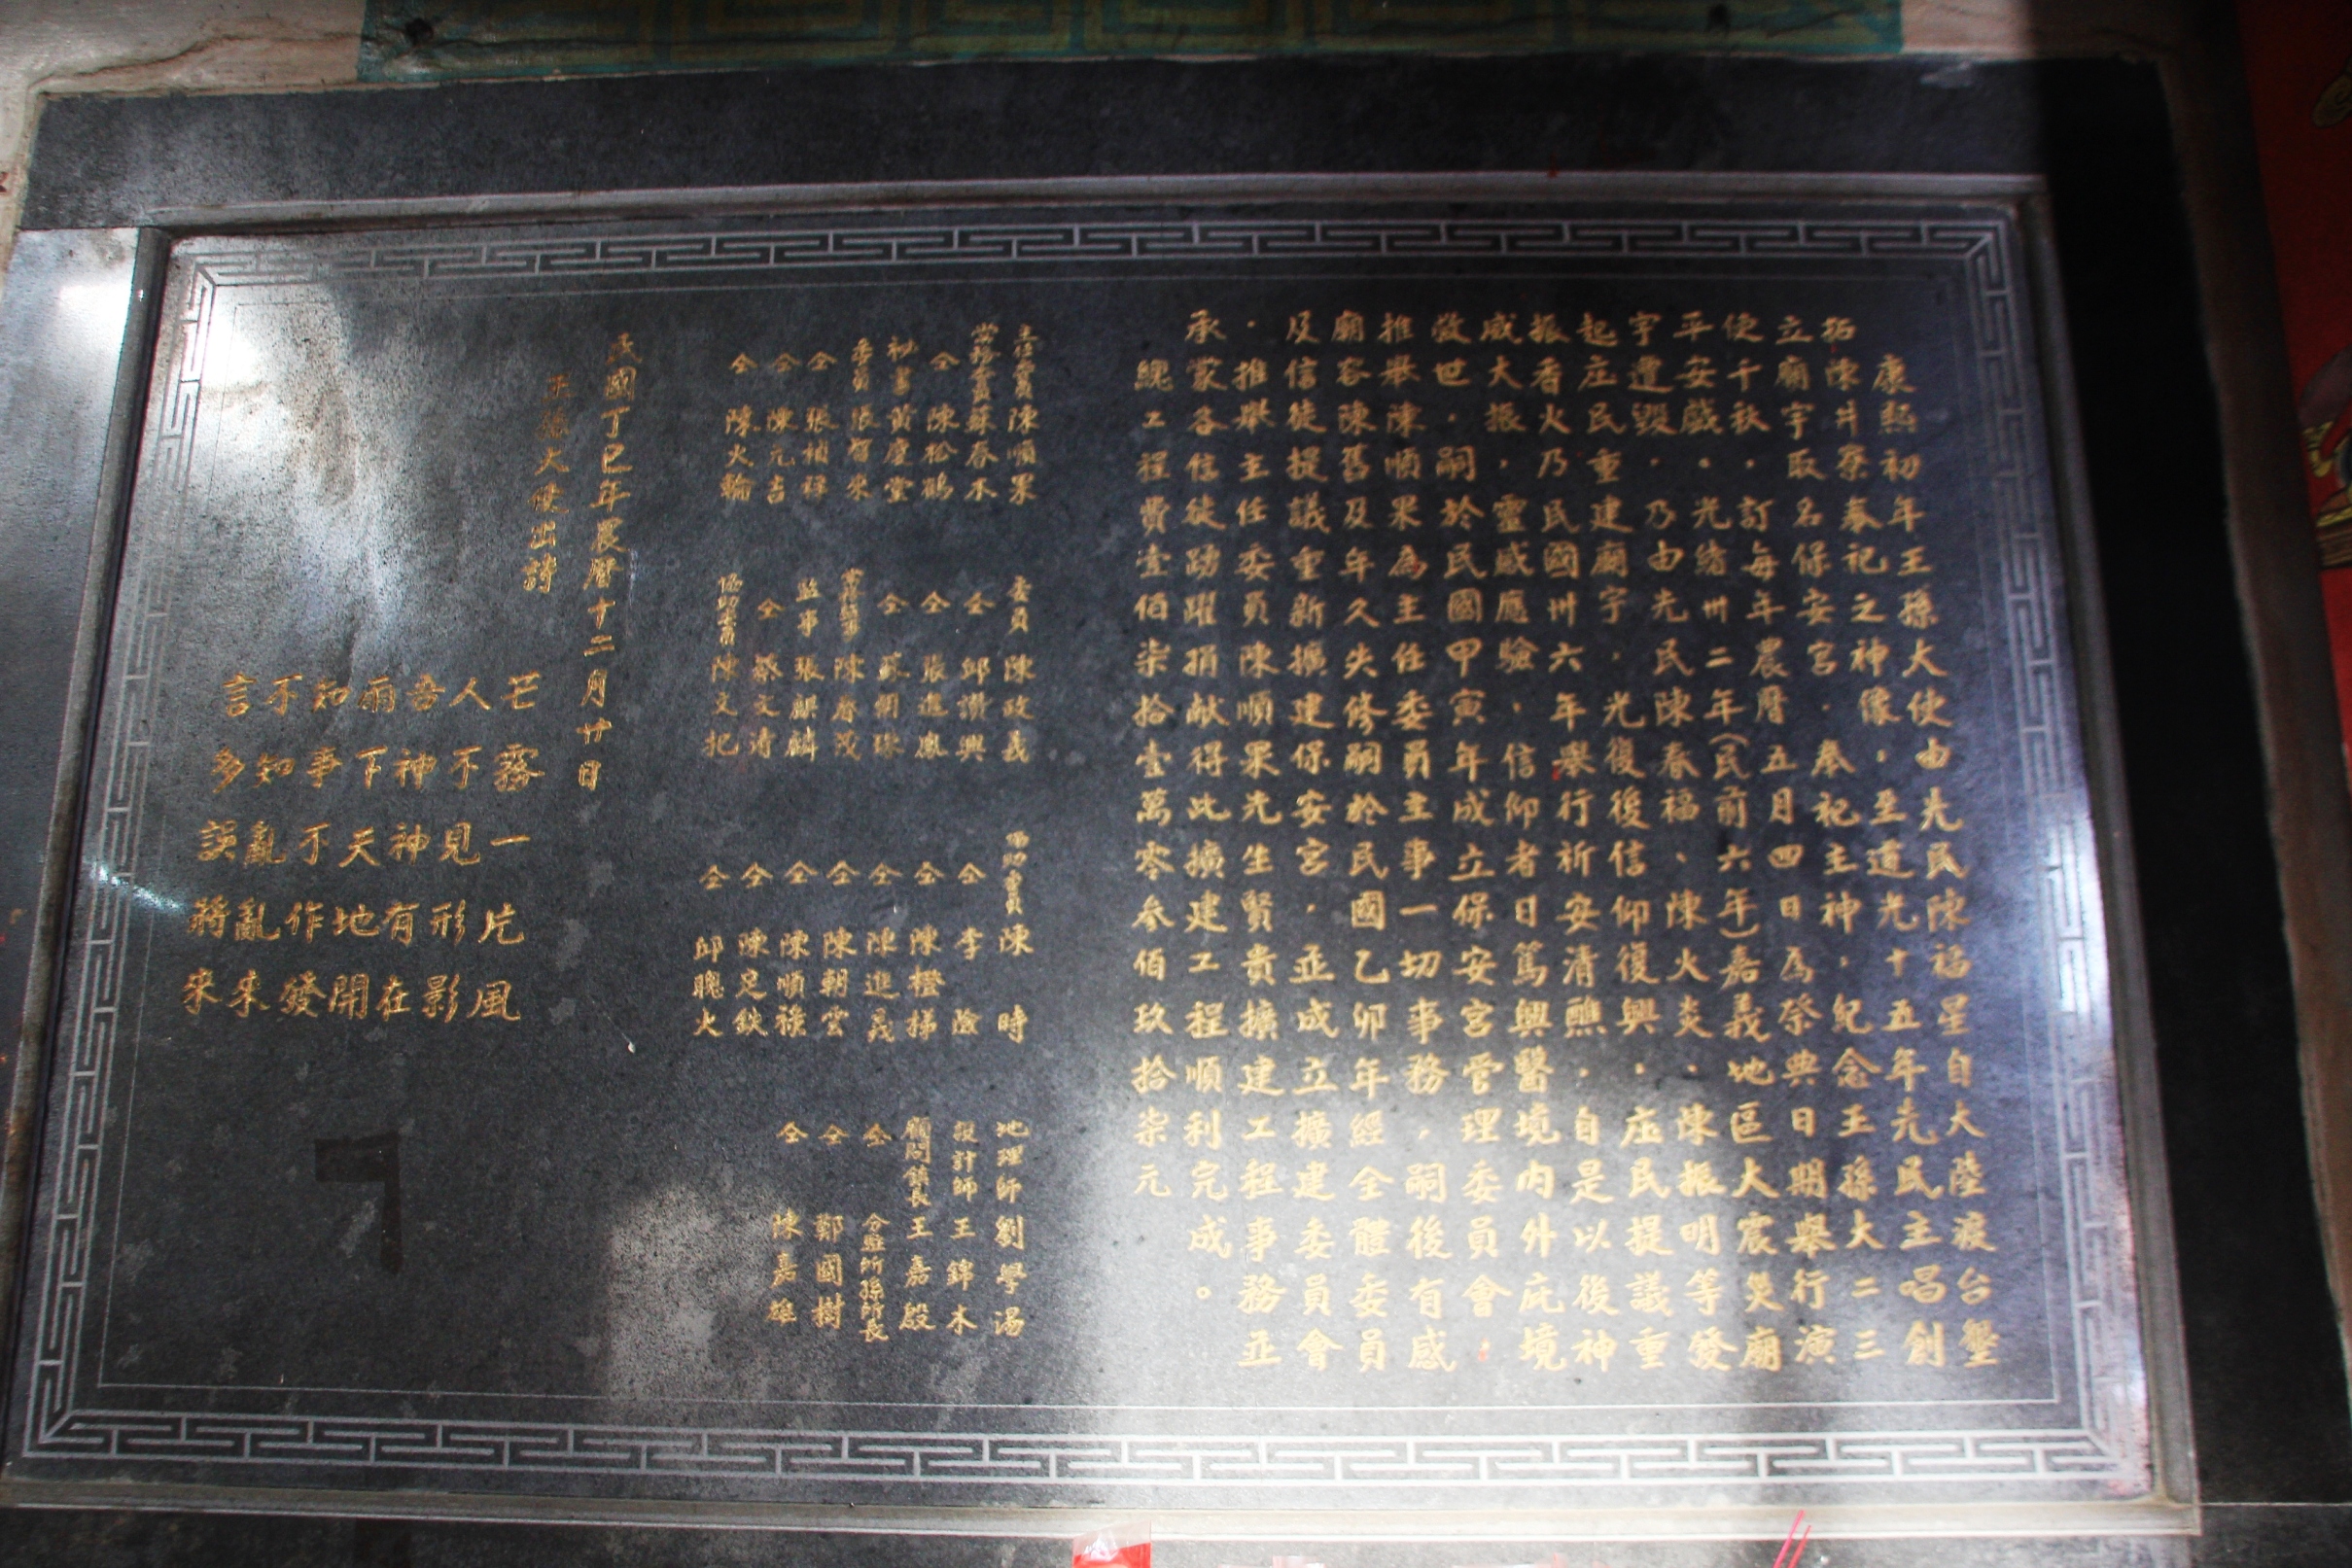 康熙初年王孫大使由先民陳福星自大陸渡台墾
拓陳井寮奉祀之神像，至道光十五年先民主昌創
立廟宇取名保安宮．奉祀主神，紀念王孫大二三
使千秋，訂每年農曆五月四日為祭典日期舉行演
平安戲。光緒卅二年（民前六年）嘉義地區大震災廟
宇遭毀．乃由先民陳春福、陳火炎．陳振明等發
起庄民重建廟宇．光復後信仰復興．庄民提議重
振香火乃民國卅六年舉行祈安清醮．自是以後神
威大振，靈感應驗，信仰者日篤興醫境內外庇境
救世．嗣於民國甲寅年成立保安宮管理委員會：
推舉陳順果為主任委員主事一切事務，嗣後有感
廟容陳舊及年久失修嗣於民國乙卯年經全體委員
及信徒提議重新擴建保安宮，並成立擴建委員會
．推舉主任委員陳順果先生賢貴擴建工程事務並
承蒙各信徒踴躍捐獻得此擴建工程順利完成。
總工程費壹佰柒拾壹萬零叁佰玖拾柒元
主任委員 陳順果 委員 陳政義 協助委員 陳時 地理師 劉學湯
常務委員 蘇春木 仝 邱讚興 仝 李險 設計師 王錦木
仝 陳松鶴 仝 張進嵐 仝 陳橙梯 顧問鎮長 王嘉殷
秘書 黃慶堂 仝 蘇朝琭 仝 陳進義 仝 分駐所孫所長
委員 張智來 常務監事 陳啓茂 仝 陳朝雲 仝 鄭國樹
仝 張禎祥 監事 張麒麟 仝 陳順祿 仝 陳嘉雄
仝 陳元吉 仝 蔡文清 仝 陳足欽
仝 陳火輪 協助委員 陳文把 仝 邱聰火
民國丁巳年農曆十二月廿日
王孫大使出詩
芒霧一片風
人不見形影
吞神神有在
雨下天地開
知事不作發
不知亂亂來
言多誤將來